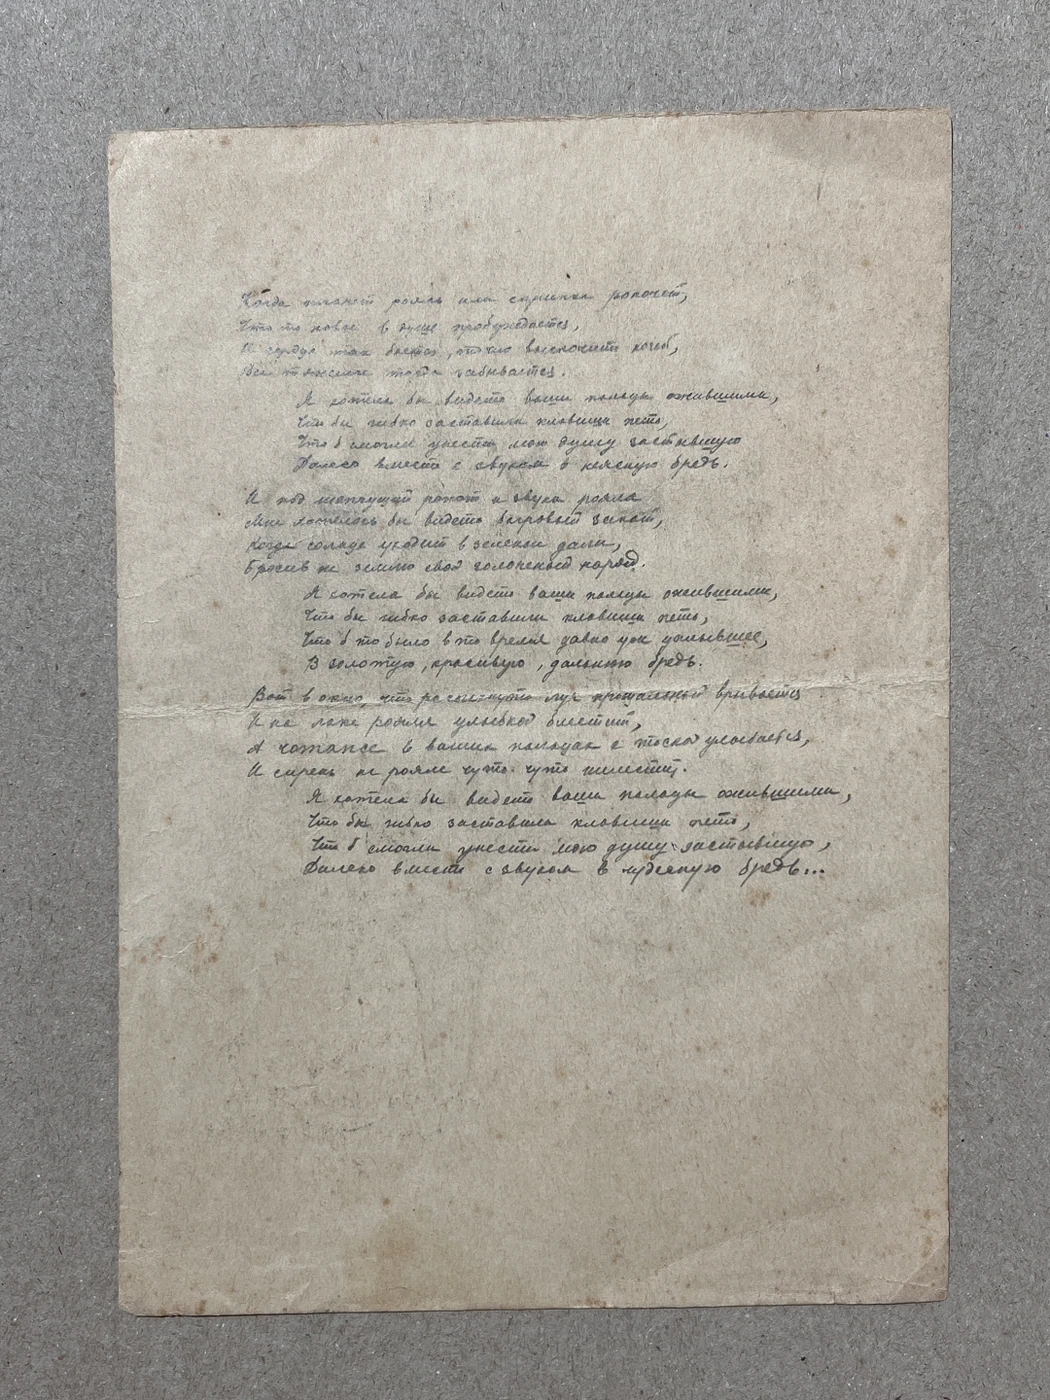 Когда плачет рояль или скрипка рокочет,
Что то новое в душе пробуждается,
И сердце так бьется, точно выскочить хочет,
Все тяжелое тогда забывается.
Я хотела бы видеть ваши пальцы ожившими,
Что бы гибко заставили клавиши петь,
Что б смогли унести мою душу застывшую
Далеко вместе с звуком в неясную бредь.
И под шепчущий рокот и звуки рояля
Мне хотелось бы видеть багровый закат,
Когда солнце уходит в зеленые дали,
Бросив на землю свой золоченый наряд.
Я хотела бы видеть ваши пальцы ожившими,
Что бы гибко заставили клавиши петь,
Что б то было в то время давно уж уплывшее,
В золотую, красивую, дальнюю бредь.
Вот в окно, что распахнуто луч прощальный врывается
И на лаке рояля улыбкой блестит,
А в ваших пальцах с тоской улыбается,
И сирень на рояле чуть-чуть шелестит.
Я хотела бы видеть ваши пальцы ожившими,
Что бы гибко заставили клавиши петь,
Что б смогли унести мою душу застывшую,
Далеко вместе с звуком в чудесную бредь...